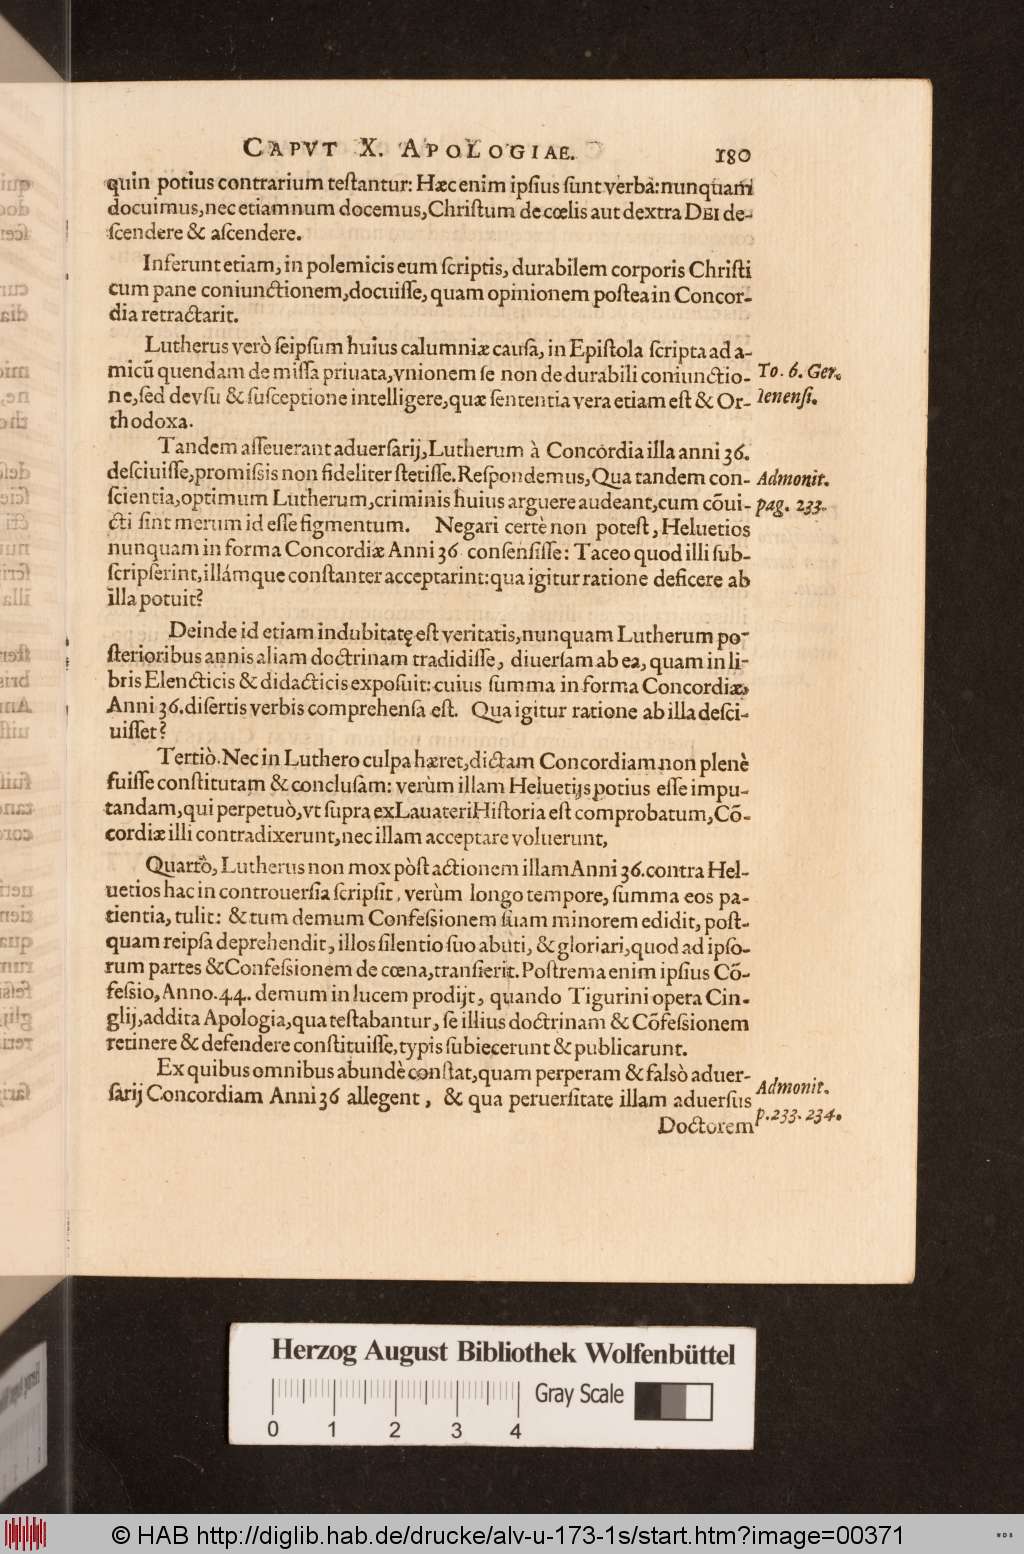 CAPVT X. APOLOGIAE. 180
quin potius contrarium teſtantur: Hæc enim ipſius ſunt verba: nunquam
docuimus, nec etiamnum docemus, Chriſtum de cœlis aut dextra DEI de-
ſcendere & aſcendere.
Inferunt etiam, in polemicis eum ſcriptis, durabilem corporis Chriſti
cum pane coniunctionem, docuiſſe, quam opinionem poſtea in Concor-
dia retractarit.
Lutherus verò ſeipſum huius calumniæ cauſa, in Epiſtola ſcripta ad a-
micũ quendam de miſſa priuata, vnionem ſe non de durabili coniunctio- To. 6. Ger.
ne, ſed de vſu & ſuſceptione intelligere, quæ ſententia vera etiam eſt & Or- Ienenſi.
thodoxa.
Tandem aſſeuerant aduerſarij, Lutherum à Concordia illa anni 36.
deſciuiſſe, promiſsis non fideliter ſtetiſſe. Reſpondemus, Qua tandem con- Admonit.
ſcientia, optimum Lutherum, criminis huius arguere audeant, cum cõui- pag. 233.
cti ſint merum id eſſe figmentum. Negari certè non poteſt, Heluetios
nunquam in forma Concordiæ Anni 36 conſenſiſſe: Taceo quod illi ſub-
ſcripſerint, illámque conſtanter acceptarint: qua igitur ratione deficere ab
illa potuit?
Deinde id etiam indubitatę eſt veritatis, nunquam Lutherum po-
ſterioribus annis aliam doctrinam tradidiſſe, diuerſam ab ea, quam in li-
bris Elencticis & didacticis expoſuit: cuius ſumma in forma Concordiæ,
Anni 36. diſertis verbis comprehenſa eſt. Qua igitur ratione ab illa deſci-
uiſſet?
Tertiò. Nec in Luthero culpa hæret, dictam Concordiam non plenè
fuiſſe conſtitutam & concluſam: verùm illam Heluetijs potius eſſe impu-
tandam, qui perpetuò, vt ſupra ex Lauateri Hiſtoria eſt comprobatum, Cõ-
cordiæ illi contradixerunt, nec illam acceptare voluerunt,
Quartò, Lutherus non mox pòſt actionem illam Anni 36. contra Hel-
uetios hac in controuerſia ſcripſit, verùm longo tempore, ſumma eos pa-
tientia, tulit: & tum demum Confeſsionem ſuam minorem edidit, poſt-
quam reipſa deprehendit, illos ſilentio ſuo abuti, & gloriari, quod ad ipſo-
rum partes & Confeſsionem de cœna, tranſierit. Poſtrema enim ipſius Cõ-
feſsio, Anno. 44. demum in lucem prodijt, quando Tigurini opera Cin-
glij, addita Apologia, qua teſtabantur, ſe illius doctrinam & Cõfeſsionem
retinere & defendere conſtituiſſe, typis ſubiecerunt & publicarunt.
Ex quibus omnibus abundè conſtat, quam perperam & falsò aduer- Admonit.
ſarij Concordiam Anni 36 allegent, & qua peruerſitate illam aduerſus p. 233. 234.
Doctorem
Herzog August Bibliothek Wolfenbüttel
Gray Scale
0 1 2 3 4
© HAB http://diglib.hab.de/drucke/alv-u-173-1s/start.htm?image=00371